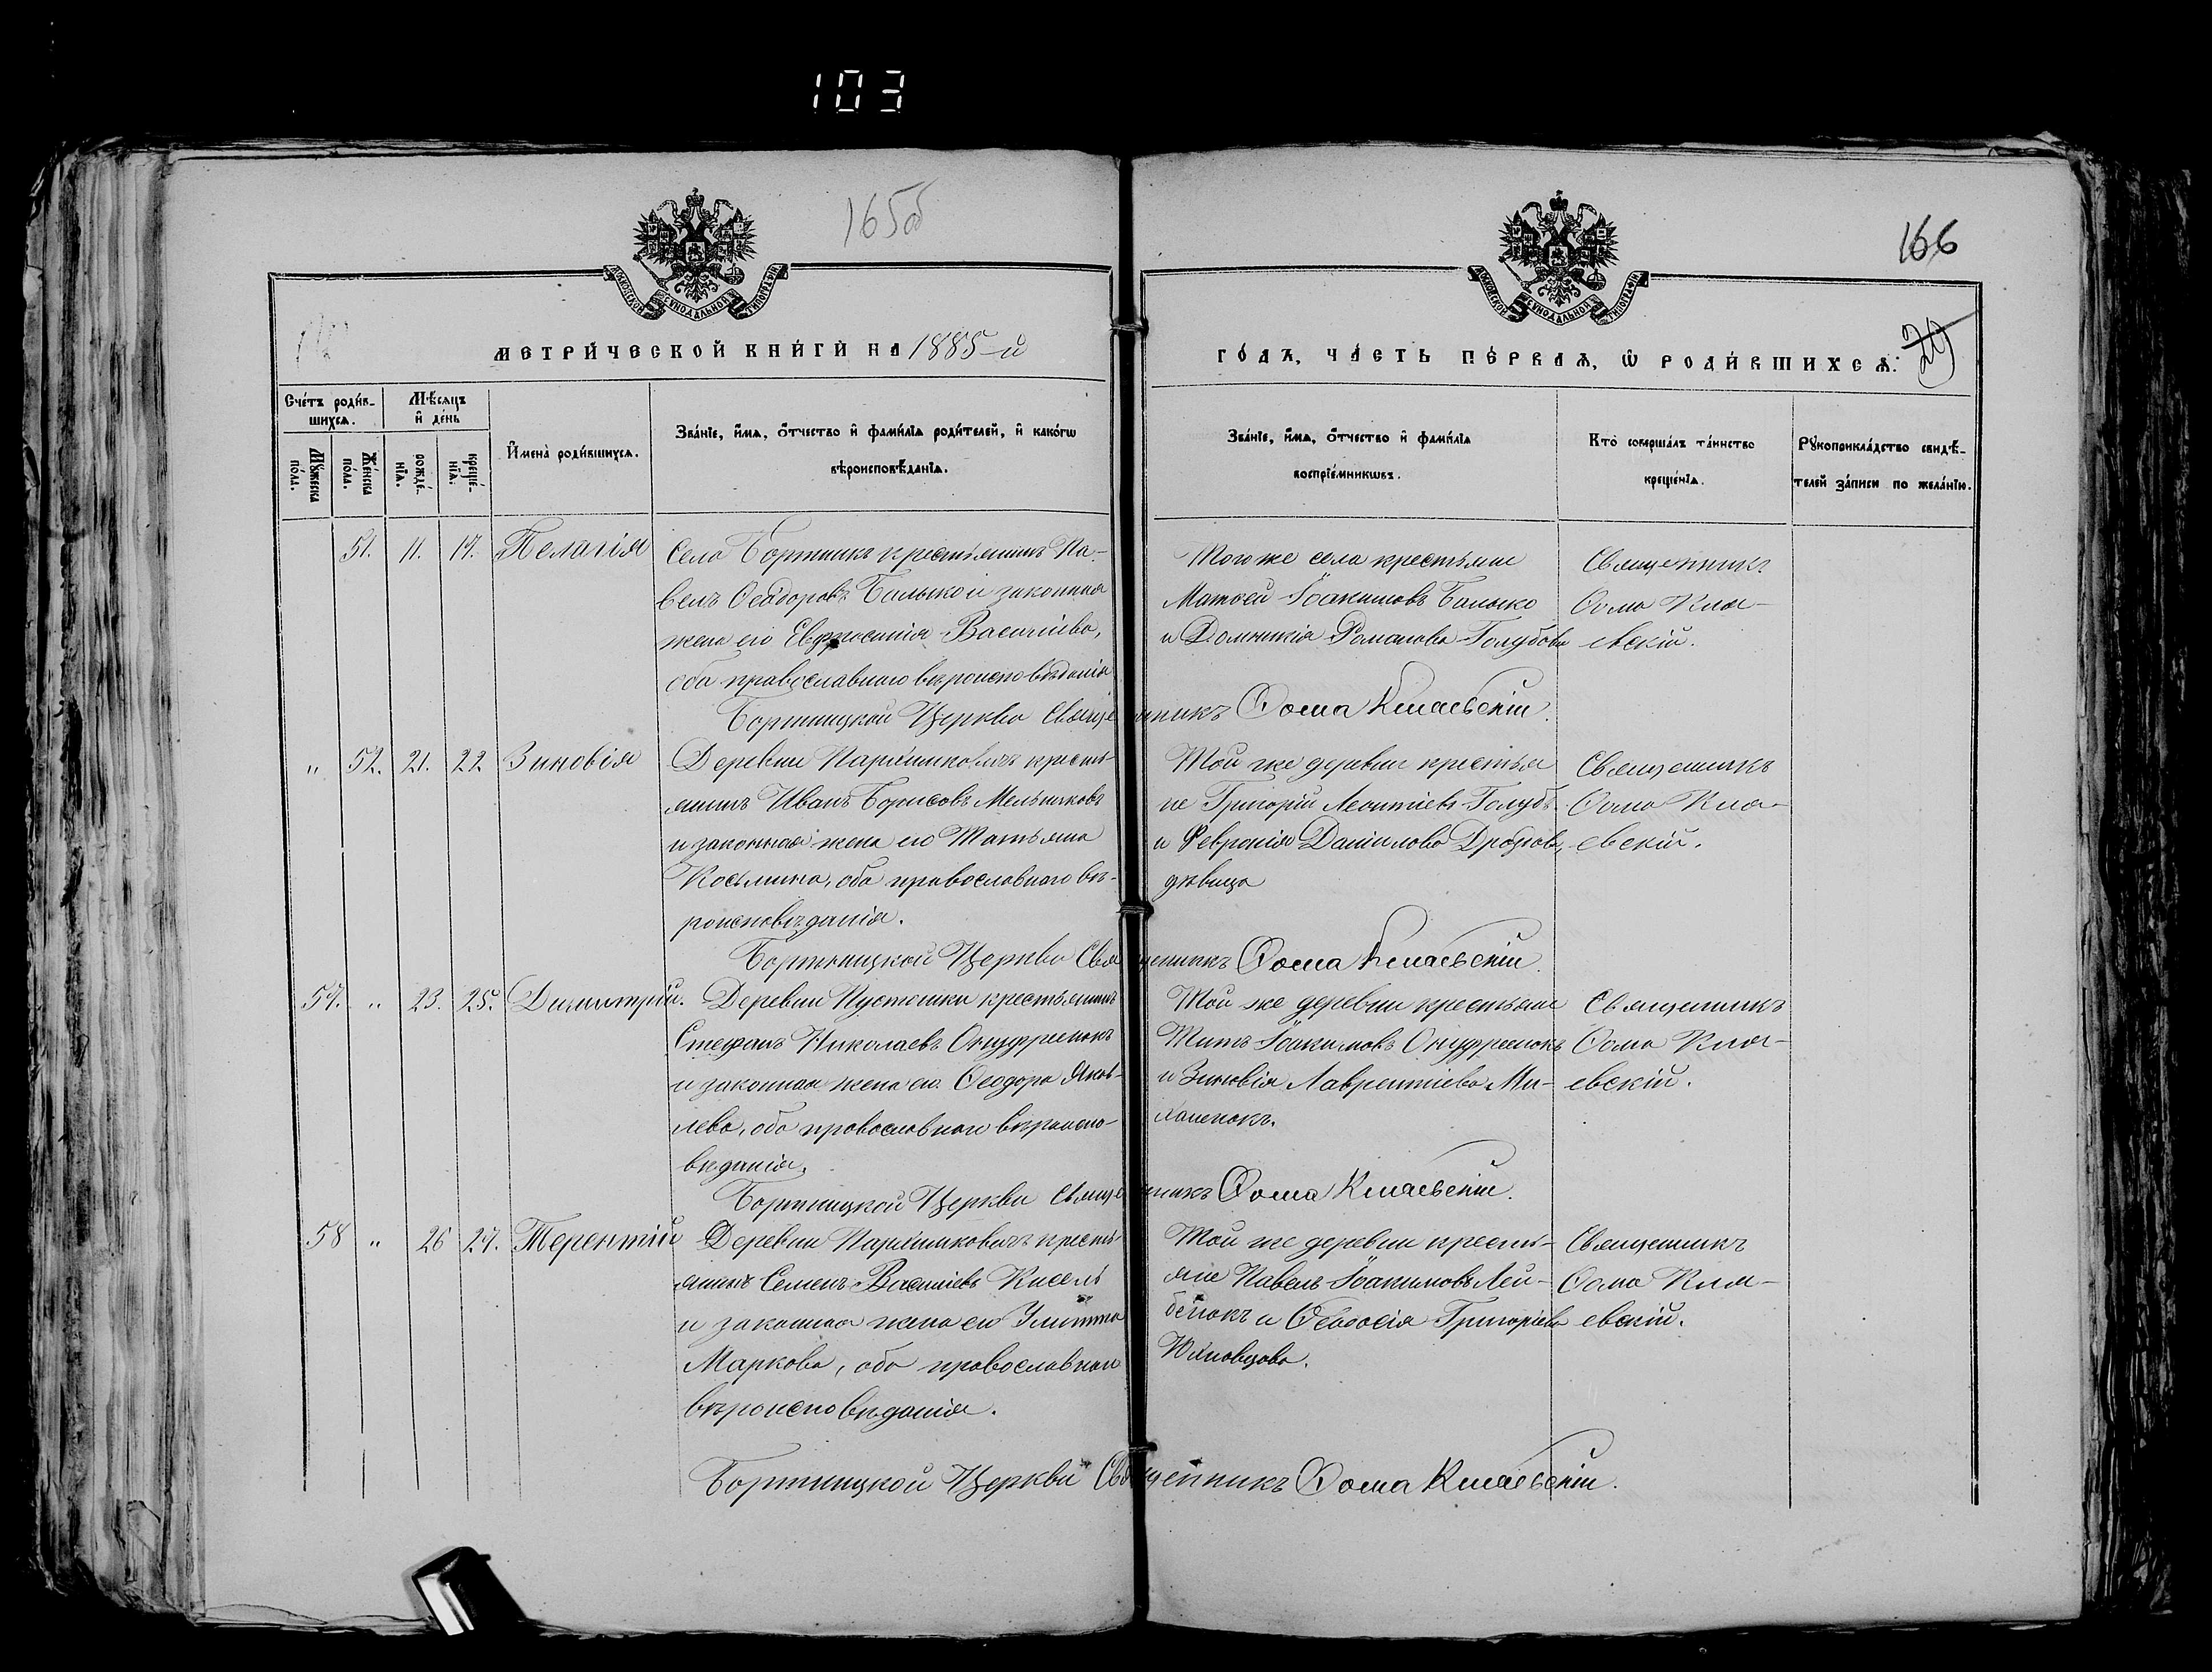 103
165об
166
29
МОСКОВСКОЙ СѴНОДАЛЬНОЙ ТИПОГРАФІИ
МОСКОВСКОЙ СѴНОДАЛЬНОЙ ТИПОГРАФІИ
МЕТРИ́ЧЕСКОЙ КНИ́ГИ НА 1885-й
ГО́ДЪ, ЧА́СТЬ ПЕ́РВАѦ, Ѡ РОДИ́ВШИХСѦ:
Сче́тъ роди́в-
шихсѧ.
Мѣ́сѧцъ
и де́нь
Мꙋ́жеска
по́ла.
Же́нска
по́ла.
рожде́-
нїѧ.
креще́-
нїѧ.
И҆мена̀ роди́вшихсѧ.
Зва́нїе, и҆́мѧ, ѻ҆́тчество и҆ фами́лїѧ роди́телей, и҆ како́гѡ
вѣроисповѣ́данїѧ.
Зва́нїе, и҆́мѧ, ѻ҆́тчество и҆ фами́лїѧ
воспрїе́мникѡвъ.
Кто̀ соверша́лъ та́инство
креще́нїѧ.
Рꙋкоприкла́дство свидѣ́-
телей за́писи по жела́нїю.
51. 11. 17. Пелагія
Села Бортникъ крестьянинъ Па-
велъ Ѳеодоровъ Балыко и законная
жена его Евфросинія Василіева,
оба православнаго вѣроисповѣданія
Того же села крестьяне
Матѳей Іоакимовъ Балыко
и Домникія Романова Голубова
Священникъ
Ѳома Кма-
евскій.
Бортницкой Церкви Священникъ Ѳома Кмаевскій.
" 52. 21. 22 Зиновія
Деревни Пархимковичъ кресть-
янинъ Иванъ Борисовъ Мельниковъ
и законная жена его Татьяна
Косьмина, оба православнаго вѣ-
роисповѣданія.
Той же деревни крестья
не Григорій Леонтіевъ Голубъ
и Февронія Даніилова Дроздова,
дѣвица
Священникъ
Ѳома Кма-
евскій.
Бортницкой Церкви Священникъ Ѳома Кмаевскій.
57. " 23. 25. Димитрій.
Деревни Пустошки крестьянинъ
Стефанъ Николаевъ Онуфренокъ
и законная жена его Ѳеодора Яков-
лева, оба православнаго вѣроиспо-
вѣданія.
Той же деревни крестьяне
Титъ Іоакимовъ Онуфренокъ
и Зиновія Лаврентіева Ми-
халенокъ.
Священникъ
Ѳома Кма-
евскій.
Бортницкой Церкви Священникъ Ѳома Кмаевскій.
58 " 26 27. Терентій
Деревни Пархимковичъ кресть-
янинъ Семенъ Василіевъ Кисель
и законная жена его Улитта
Маркова, оба православнаго
вѣроисповѣданія.
Той же деревни кресть-
яне Павелъ Іоакимовъ Лей-
бенокъ и Ѳеодосія Григоріева
Юхновцова.
Священникъ
Ѳома Кма-
евскій.
Бортницкой Церкви Священникъ Ѳома Кмаевскій.